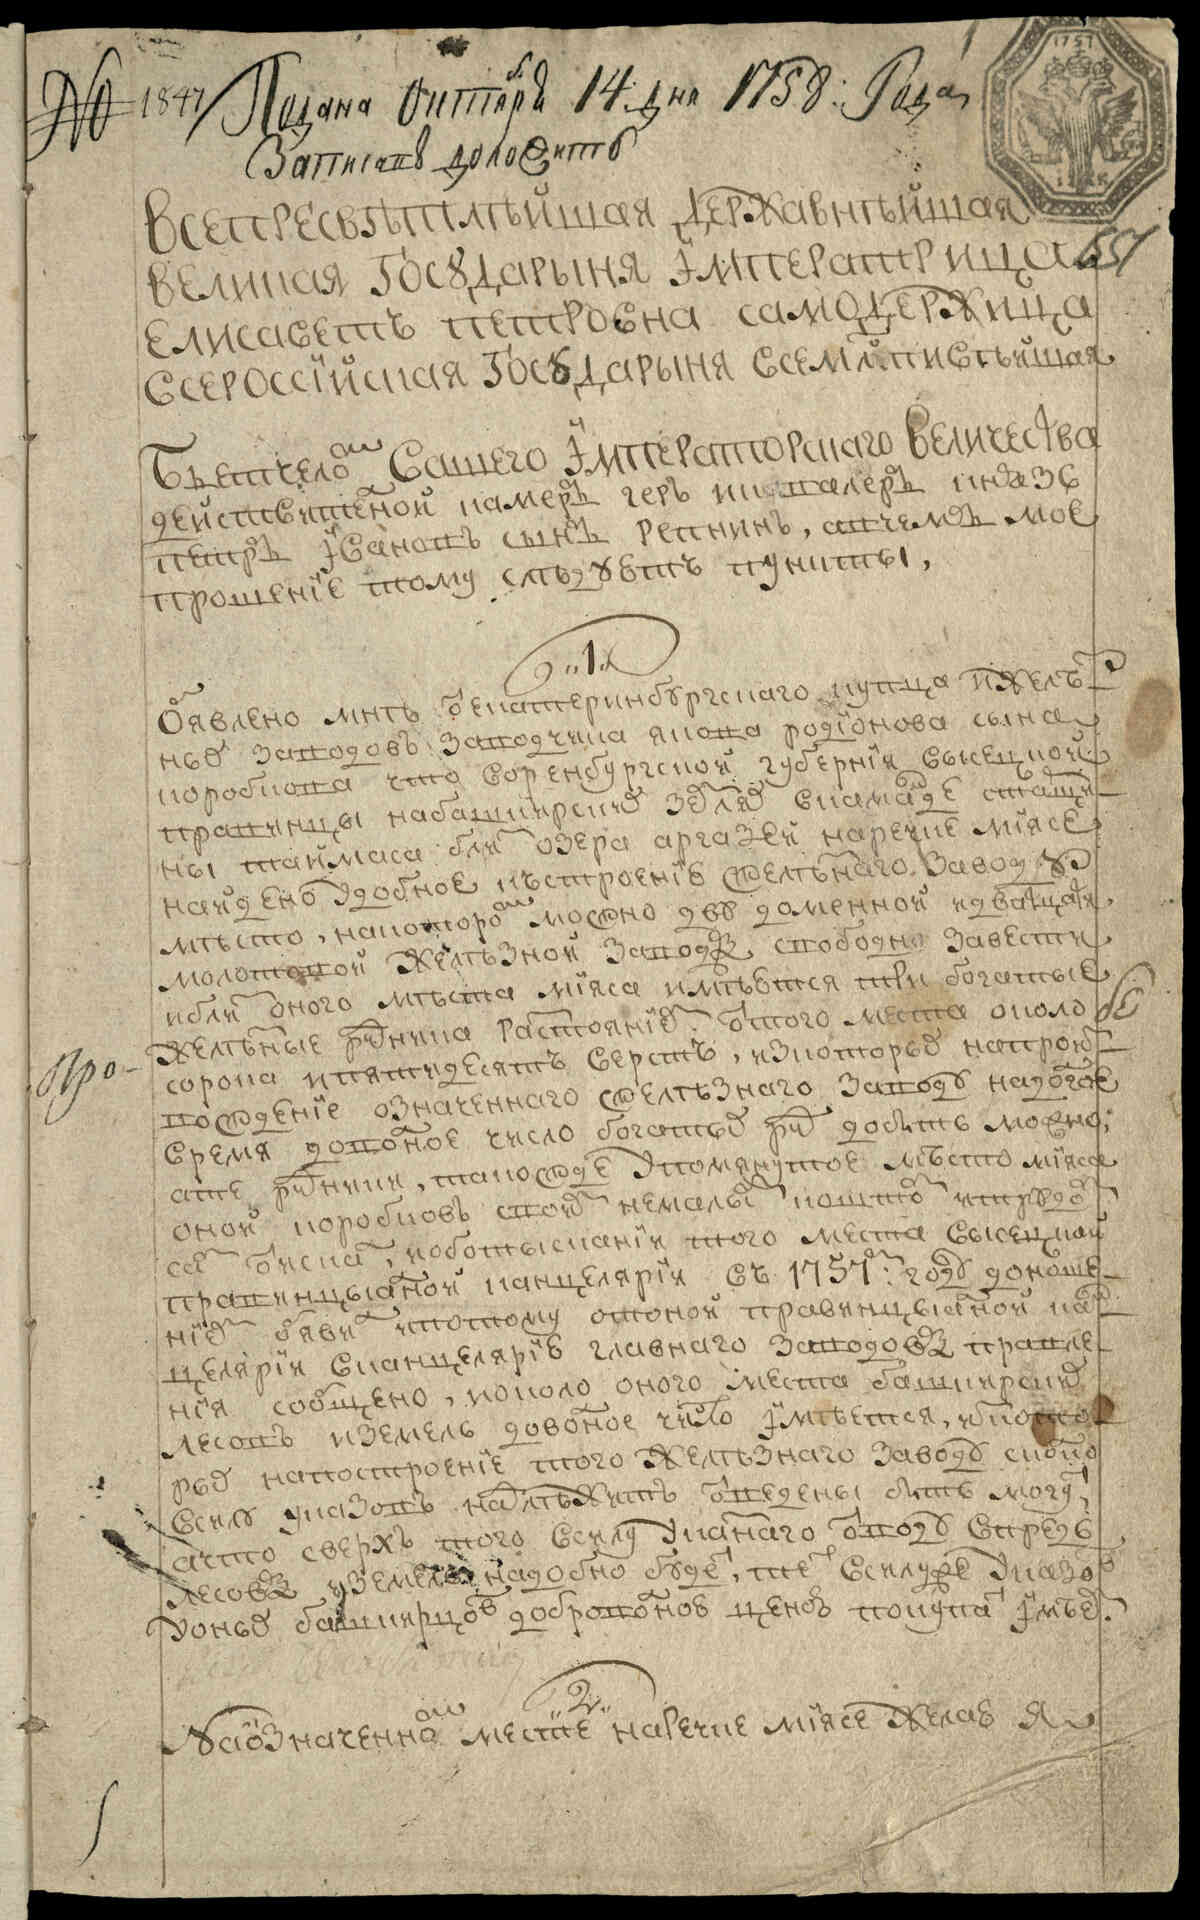 № 1847 Подана октября 14: дня 1758: Года
Записав доложить
1757
Всепресветлѣйшая державнѣйшая
великая Государыня Императрица
551
елисаветъ петровна самодержица
всероссїйская Государыня всемлстивѣйшая
Бьетчелом вашего Императорскаго величества
действителной камеръ геръ икавалеръ кнзь
петръ Ивановъ сынъ репнинъ, очемъ мое
прошенїе тому следуютъ пункты,
"1"
Обявлено мнѣ екатеринбургскаго купца ижелѣз
ных заводовъ заводчика якова родїонова сына
коробкова что воренбургской губернїи Исецкой
правинцы набашкирских землях вкаманде старши
ны таймаса близ озера аргазей наречке мїясе
найдено удобное кпостроенїю желѣзнаго заводу
мѣсто, накотором можно две доменной идватцати
молотовой желѣзной заводъ свободно завести
иблиз оного мѣста мїяса имѣются три богатые
желѣзные рудника растоянїем от того места около
сорока ипятидесятъ верстъ, изкоторых напроиз
Про-
вожденїе означеннаго желѣзнаго заводу надолгое
время доволное число богатых руд добыть можно;
ате рудники, такожде упомянутое мѣсто мїяса
оной коробковъ своим немалым коштом итрудом
сам отыскал, иоботысканїи того места висецкой
правинцыалной канцелярїи въ 1757м: году доноше
нїем обявил ипотому отоной правинцыалной кан
целярїи вканцелярїю главнаго заводовъ правле
нїя сообщено, иоколо оного места башкирских
лесовъ иземель доволное число имѣется, ис кото
рых напостроенїе того желѣзнаго заводу сколко
всилу указовъ надлѣжитъ отведены быть могут,
ачто сверхъ того всилу указнаго отводу впредь
лесовъ иземель надобно будет, те всилуже указов
уоных башкирцов доброволною ценою покупат имѣем.
"2"
Увышеозначенном месте наречке мїясе желаю я